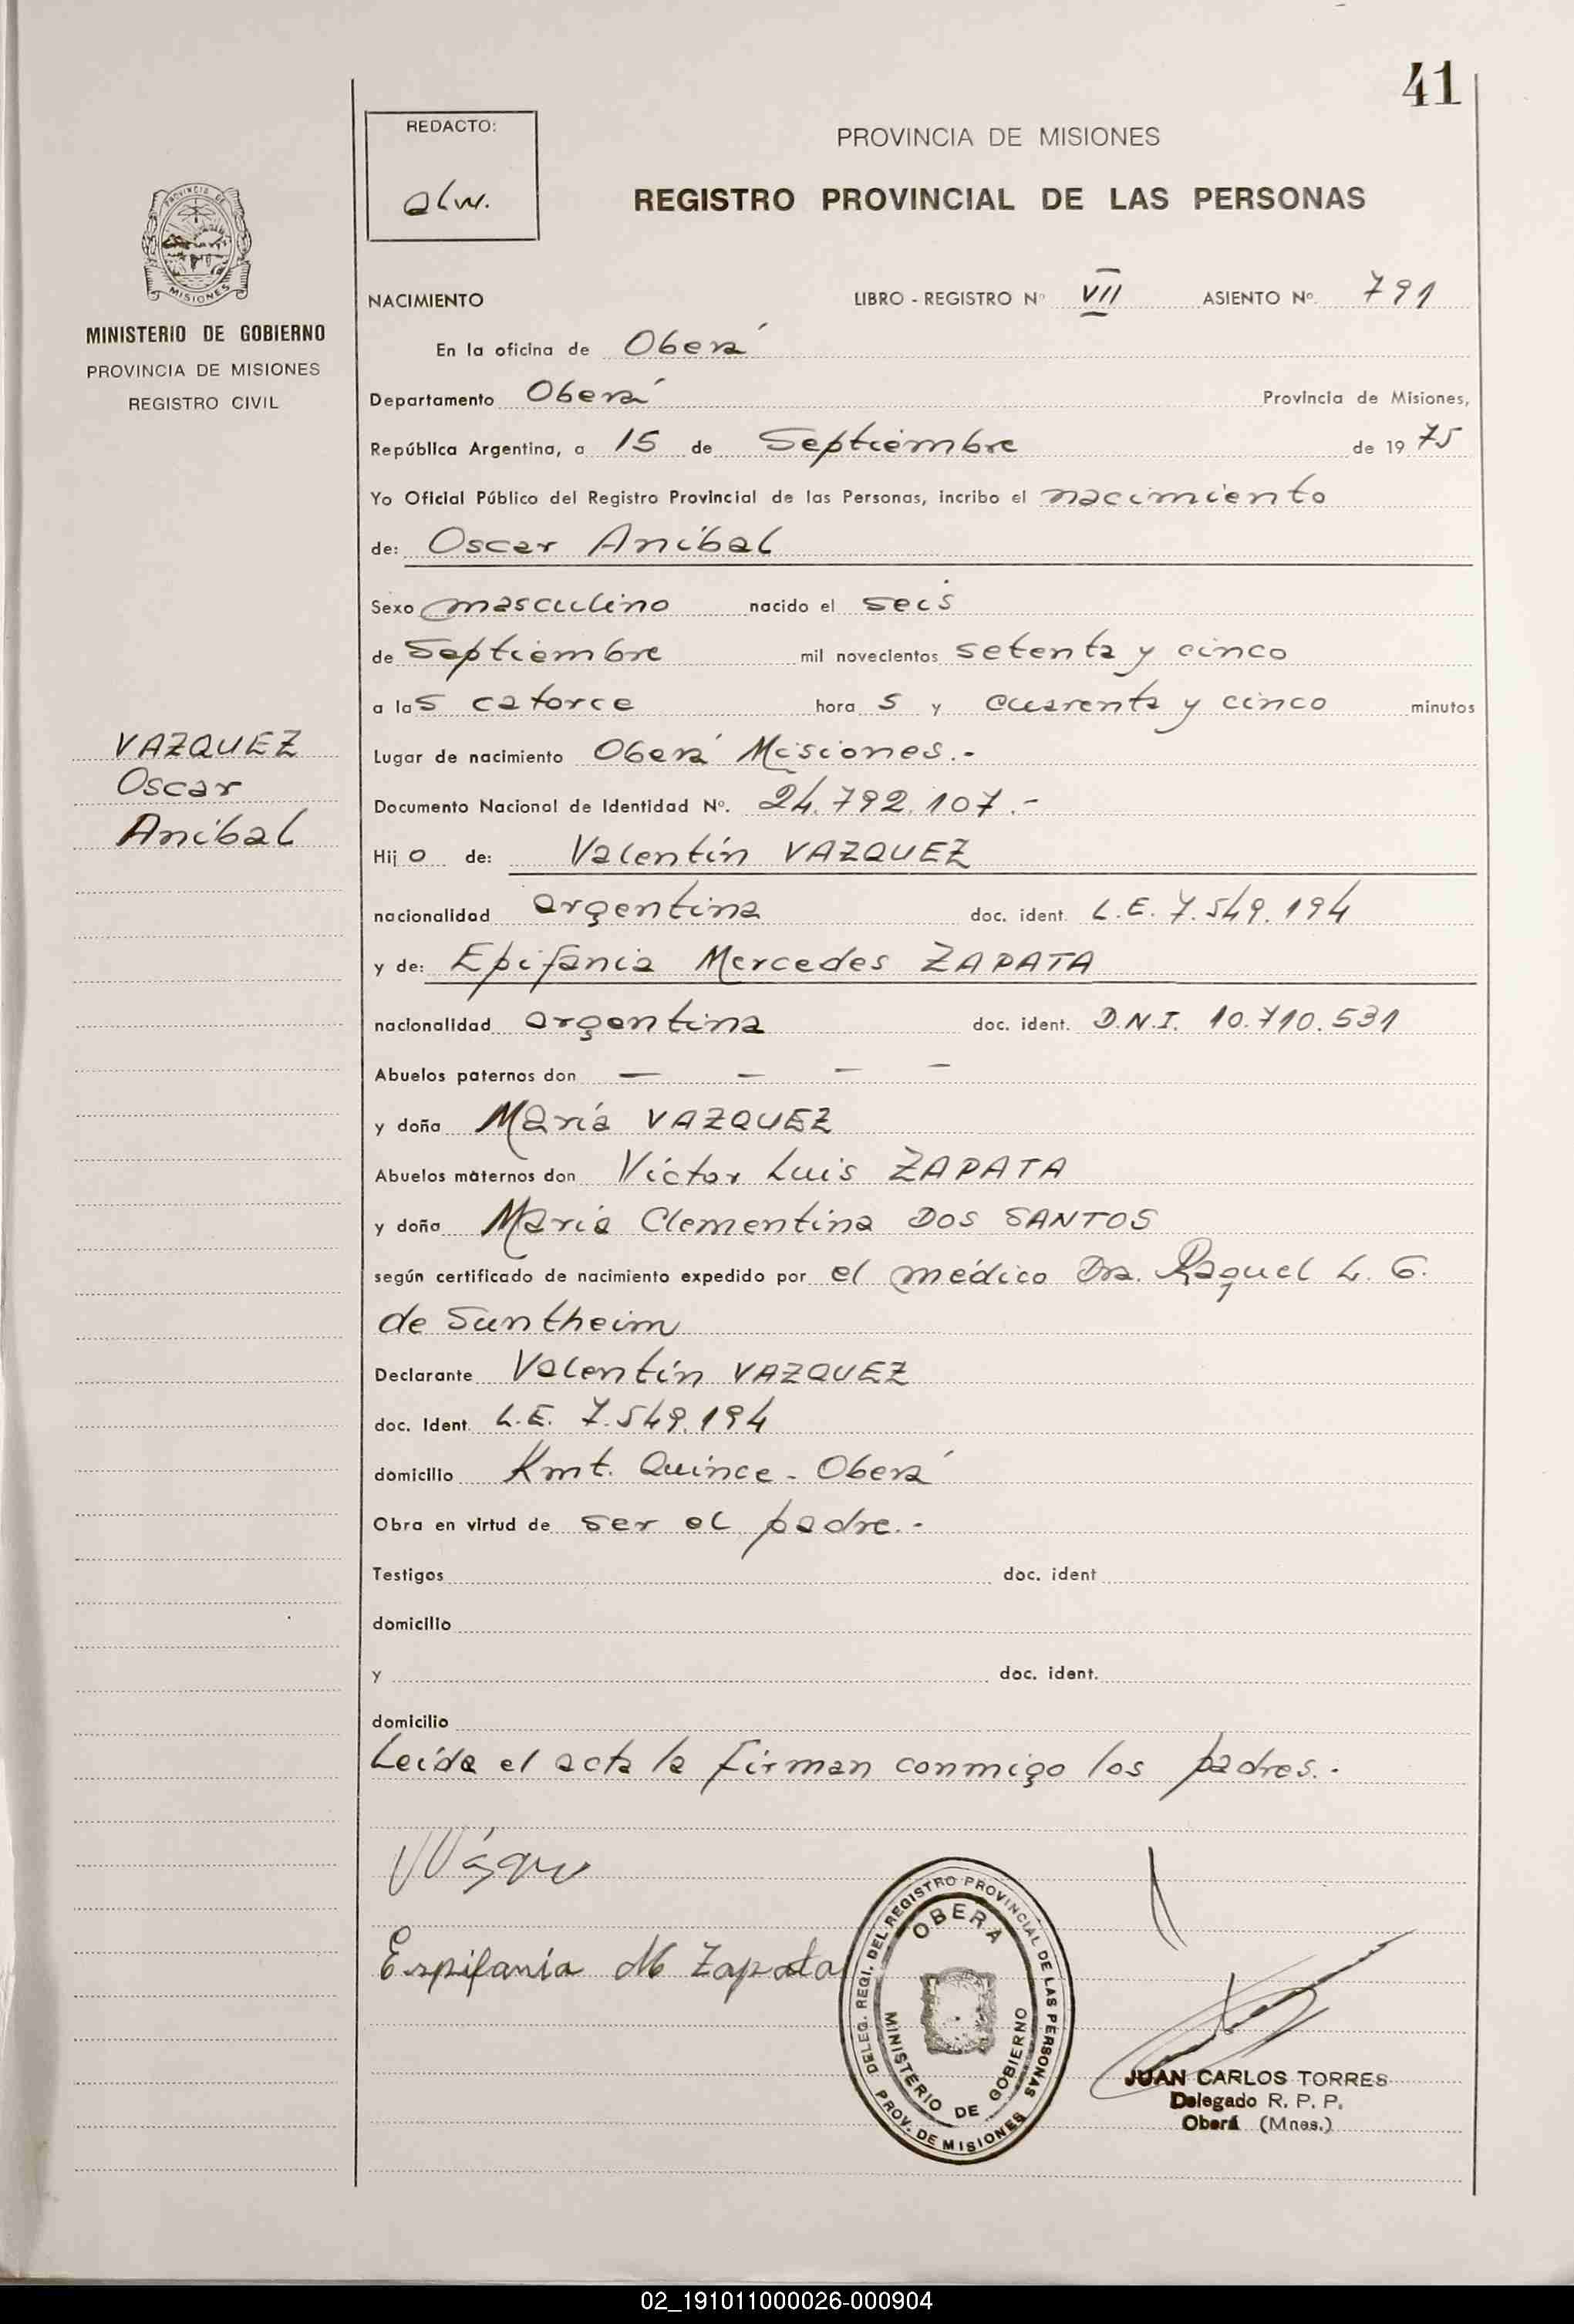 41
REDACTO:
alw.
PROVINCIA DE MISIONES
REGISTRO PROVINCIAL DE LAS PERSONAS
PROVINCIA DE
MISIONES
MINISTERIO DE GOBIERNO
PROVINCIA DE MISIONES
REGISTRO CIVIL
VAZQUEZ
Oscar
Anibal
NACIMIENTO LIBRO - REGISTRO Nº VII ASIENTO Nº 791
En la oficina de Oberá
Departamento Oberá Provincia de Misiones,
República Argentina, a 15 de Septiembre de 1975
Yo Oficial Público del Registro Provincial de las Personas, incribo el nacimiento
de: Oscar Anibal
Sexo masculino nacido el seis
de Septiembre mil novecientos setenta y cinco
a las catorce hora s y cuarenta y cinco minutos
Lugar de nacimiento Oberá Misiones.-
Documento Nacional de Identidad Nº. 24.792.107.-
Hijo de: Valentín VAZQUEZ
nacionalidad argentina doc. ident. L.E. 7.549.194
y de: Epifania Mercedes ZAPATA
nacionalidad argentina doc. ident. D.N.I. 10.710.531
Abuelos paternos don — — — —
y doña María VAZQUEZ
Abuelos maternos don Víctor Luis ZAPATA
y doña María Clementina DOS SANTOS
según certificado de nacimiento expedido por el médico Dra. Raquel L. G.
de Suntheim
Declarante Valentín VAZQUEZ
doc. Ident. L.E. 7.549.194
domicilio Kmt. Quince - Oberá
Obra en virtud de ser el padre.-
Testigos doc. ident
domicilio
y doc. ident.
domicilio
Leída el acta la firman conmigo los padres.-
Epifanía M Zapata
DELEG. REGI. DEL REGISTRO PROVINCIAL DE LAS PERSONAS
OBERA
MINISTERIO DE GOBIERNO
PROV. DE MISIONES
JUAN CARLOS TORRES
Delegado R. P. P.
Oberá (Mnes.)
02_191011000026-000904